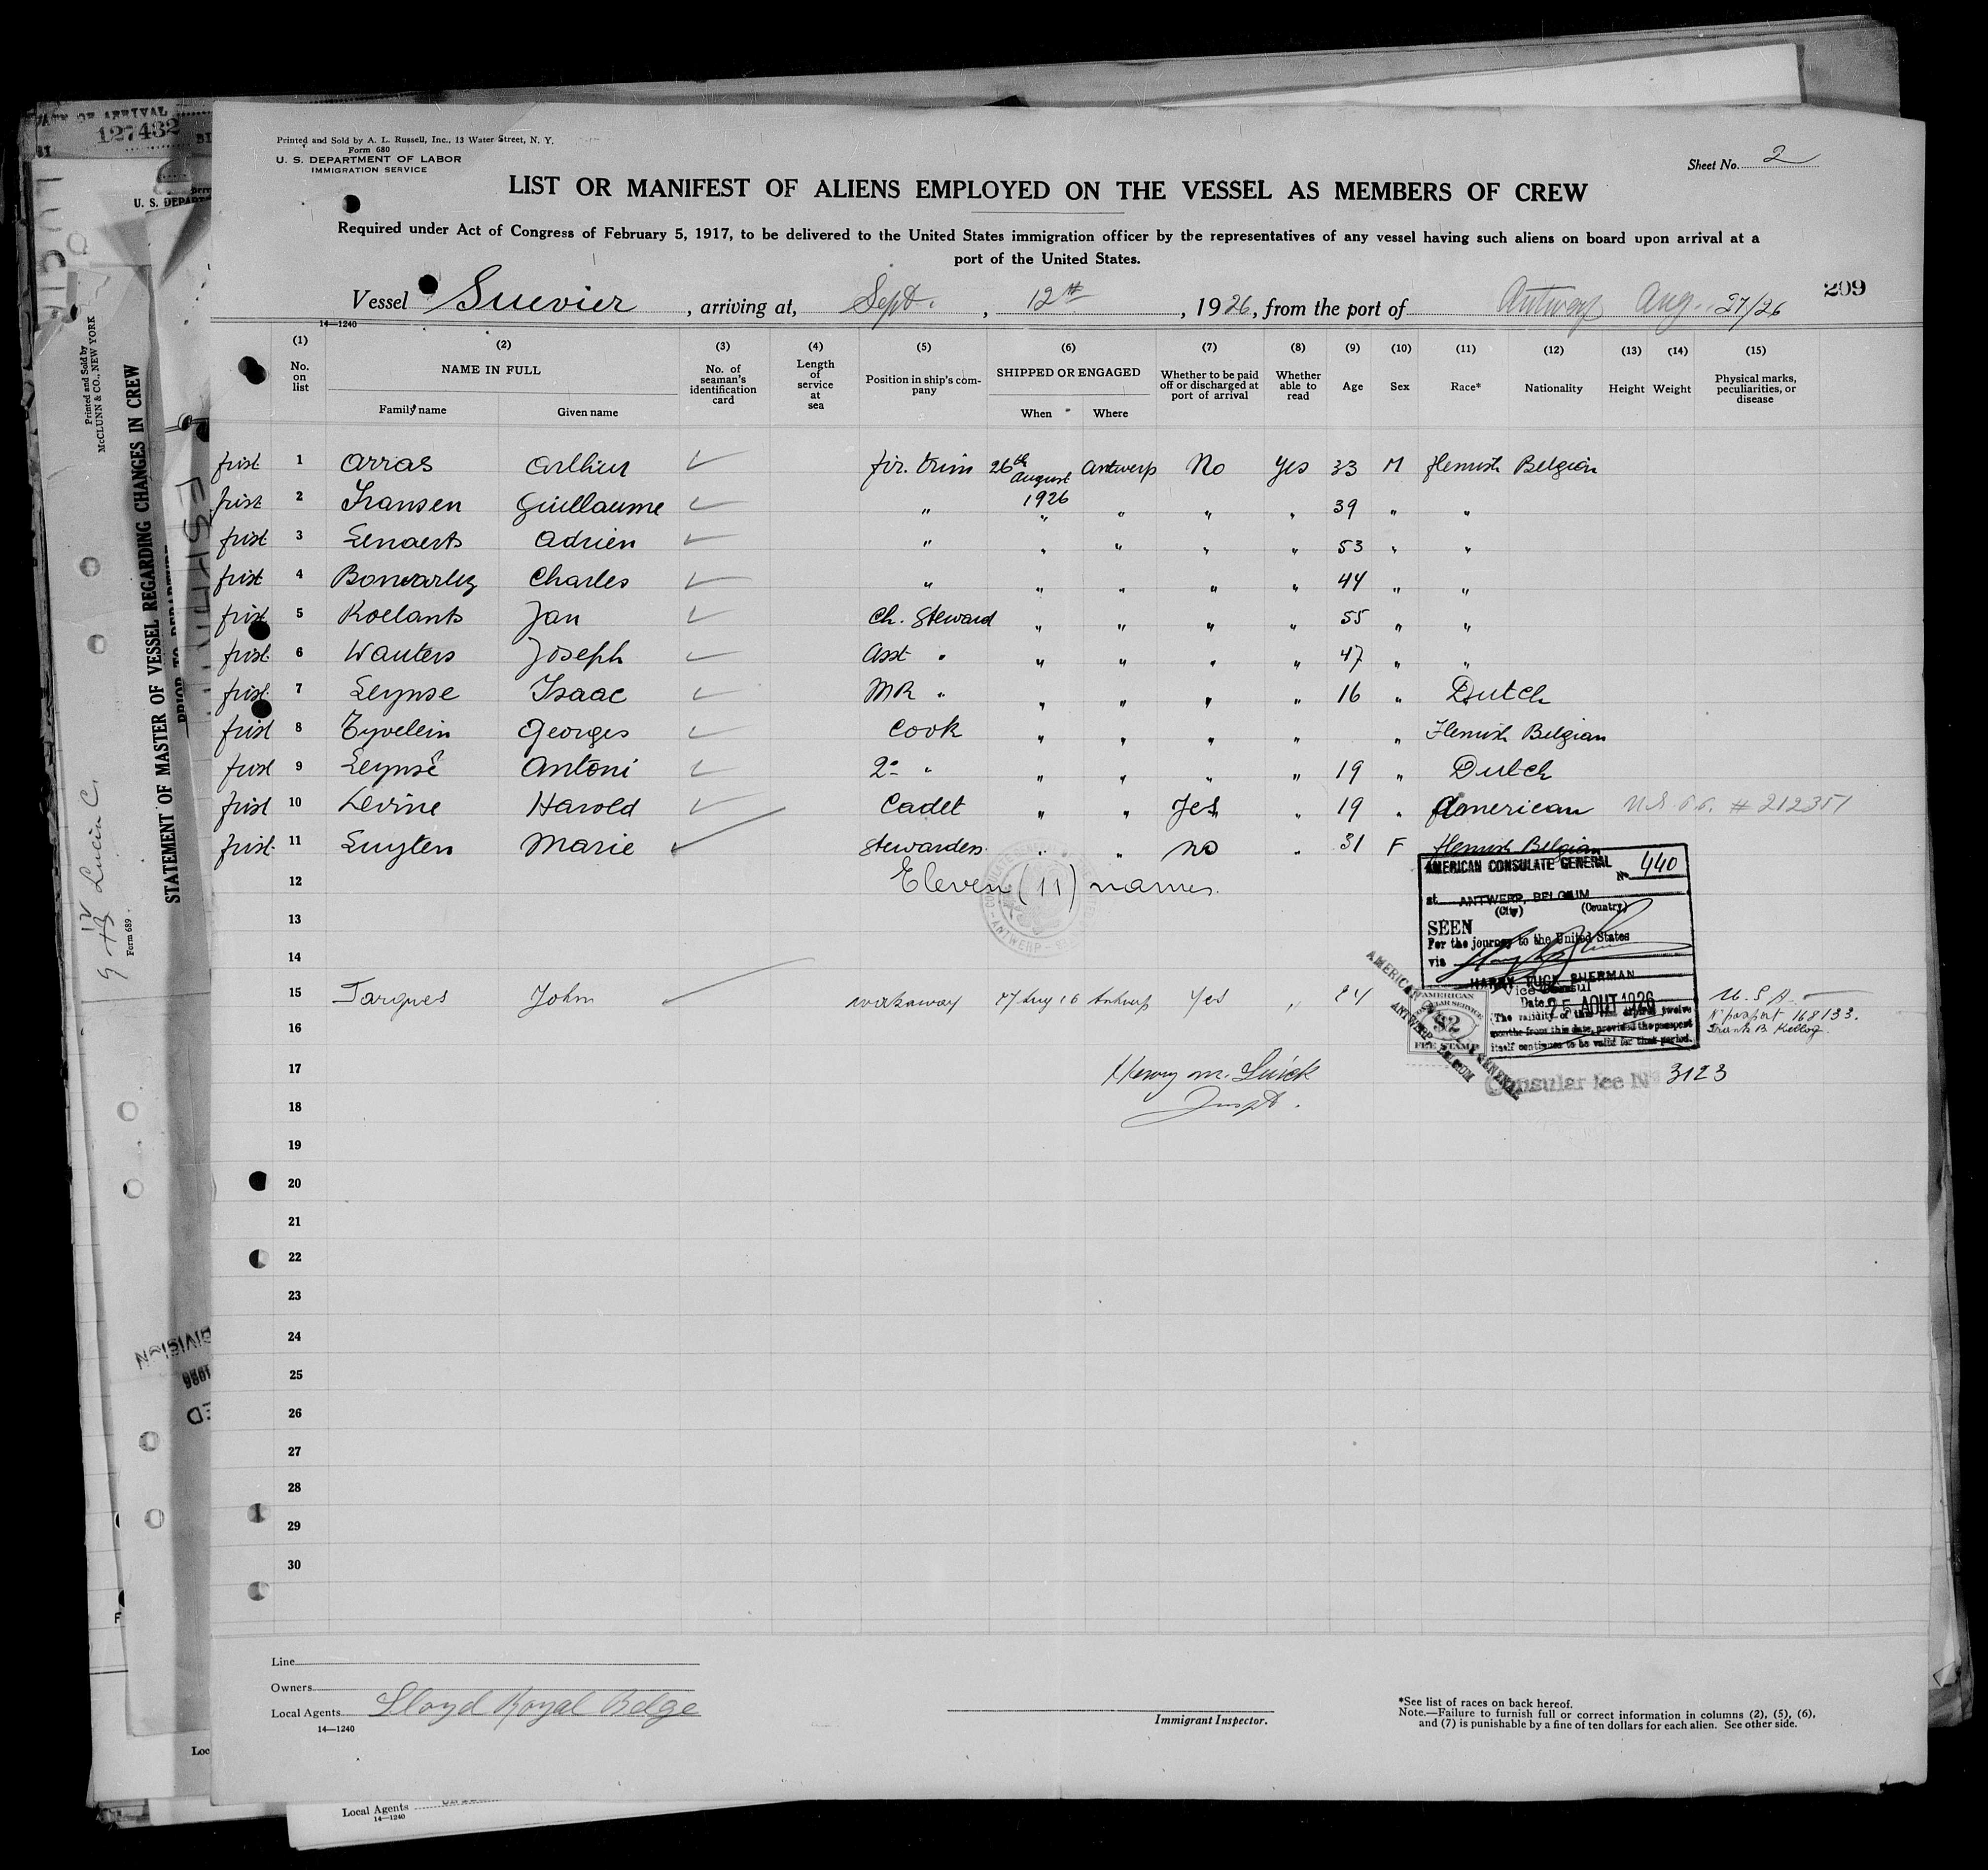 DATE OF ARRIVAL
127432
U. S. DEPART
Printed and Sold by A. L. Russell, Inc., 13 Water Street, N. Y.
Form 680
U. S. DEPARTMENT OF LABOR
IMMIGRATION SERVICE
Sheet No. 2
LIST OR MANIFEST OF ALIENS EMPLOYED ON THE VESSEL AS MEMBERS OF CREW
Required under Act of Congress of February 5, 1917, to be delivered to the United States immigration officer by the representatives of any vessel having such aliens on board upon arrival at a
port of the United States.
209
Vessel Suevier, arriving at, Sept., 12th, 1926, from the port of Antwerp Aug. 27/26
14—1240
(1) (2) (3) (4) (5) (6) (7) (8) (9) (10) (11) (12) (13) (14) (15)
No. on list
NAME IN FULL
Family name Given name
No. of seaman's identification card
Length of service at sea
Position in ship's company
SHIPPED OR ENGAGED
When Where
Whether to be paid off or discharged at port of arrival
Whether able to read
Age
Sex
Race*
Nationality
Height
Weight
Physical marks, peculiarities, or disease
first 1 Arras Arthur ✓ fir. trim 26th August 1926 Antwerp No Yes 33 M Flemish Belgian
first 2 Fransen Guillaume ✓ " " " " " 39 " "
first 3 Lenaerts Adrien ✓ " " " " " 53 " "
first 4 Charles ✓ " " " " " 44 " "
first 5 Roelants Jan ✓ Ch. Steward " " " " 55 " "
first 6 Wauters Joseph ✓ Asst " " " " " 47 " "
first 7 Leynse Isaac ✓ MR " " " " " 16 " Dutch
first 8 Tyvelein Georges ✓ Cook " " " " " Flemish Belgian
first 9 Leynse Antoni ✓ 2e " " " " " 19 " Dutch
first 10 Levine Harold ✓ Cadet " " Yes " 19 " American # 212351
first 11 Luyten Marie ✓ Stewardess " " no " 31 F Flemish Belgian
12 Eleven (11) names.
13
14
15 Jargues John workaway 27 Aug 26 Antwerp Yes " 24 U.S.A.
No passport 168133.
Frank B. Kellog.
16
17 Henry M. Luick
18 Inspt.
19
20
21
22
23
24
25
26
27
28
29
30
AMERICAN CONSULATE GENERAL
No. 440
at ANTWERP, BELGIUM
(City) (Country)
SEEN
For the journey to the United States
via
HARRY TUCK SHERMAN
Vice Consul
Date 25 AOUT 1926
The validity of this visa expires twelve
months from this date, provided the passport
itself continues to be valid for that period.
AMERICAN
CONSULAR SERVICE
$2
FEE STAMP
AMERICAN CONSULATE GENERAL
ANTWERP BELGIUM
Consular fee No 3123
Line
Owners
Local Agents Lloyd Royal Belge
14—1240
Immigrant Inspector.
*See list of races on back hereof.
Note.—Failure to furnish full or correct information in columns (2), (5), (6),
and (7) is punishable by a fine of ten dollars for each alien. See other side.
Local Agents
14—1240
Printed and Sold by
McCLUNN & CO., NEW YORK
STATEMENT OF MASTER OF VESSEL REGARDING CHANGES IN CREW
PRIOR TO DEPARTURE
Form 689
Lucia C.
DIVISION